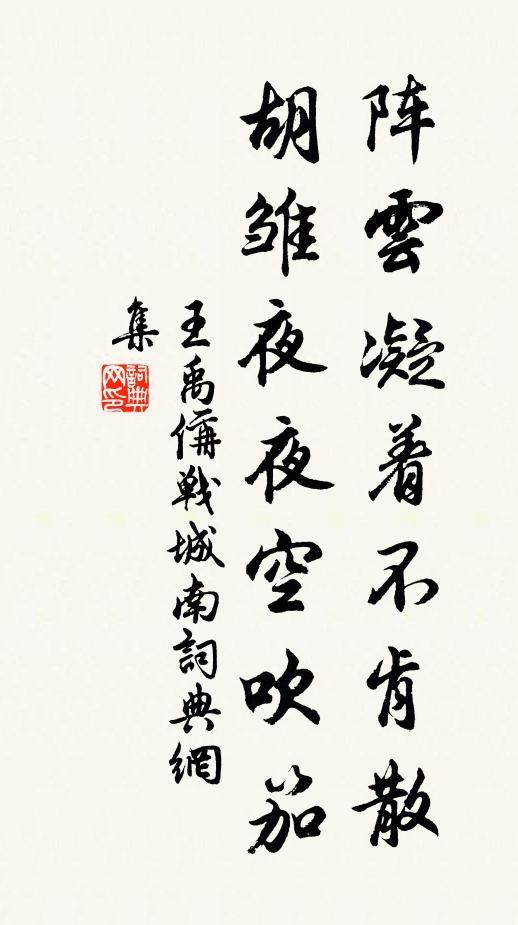 阵雲凝着不肯散
胡雏夜夜空吹笳
王禹偁戦城南詞典網
集
詞典
网印